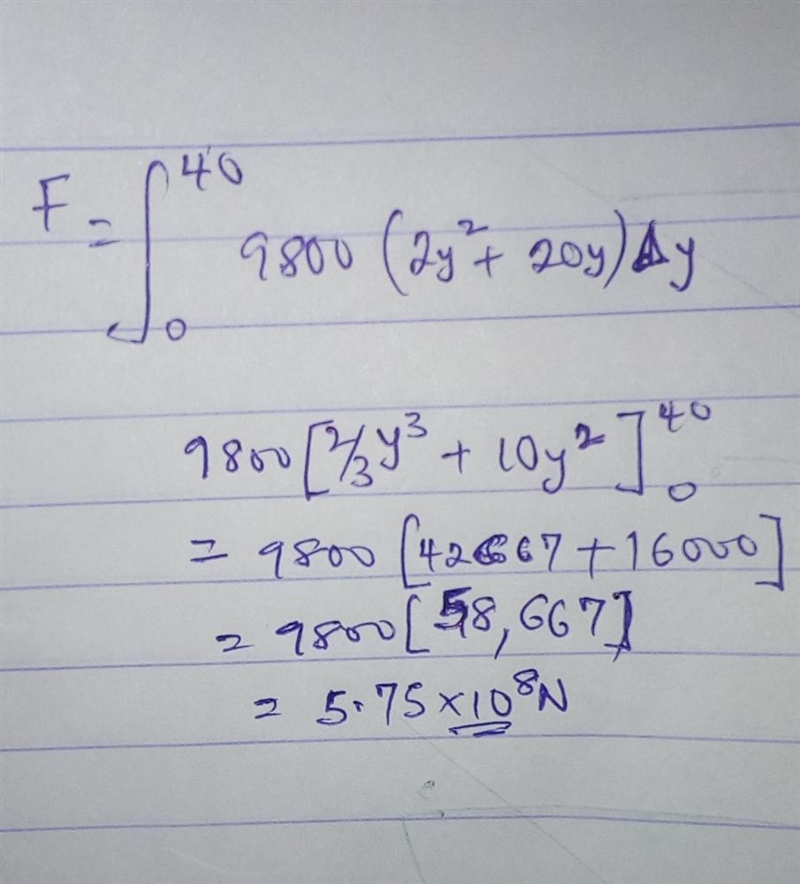 F = ∫₀⁴⁰ 9800 (2y² + 20y) Δy
9800 [2/3 y³ + 10y²]₀⁴⁰
= 9800 [42667 + 16000]
= 9800 [58,667]
= 5.75 × 10⁸ N